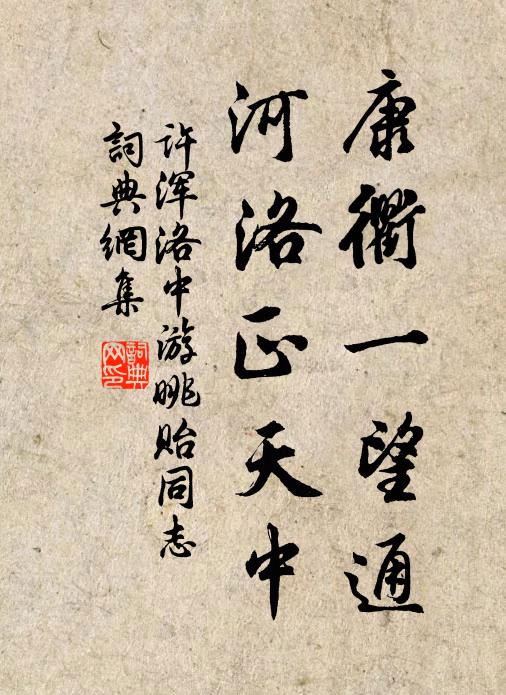 康衢一望通
河洛正天中
許渾洛中游眺貽同志
詞典網集
詞典网印